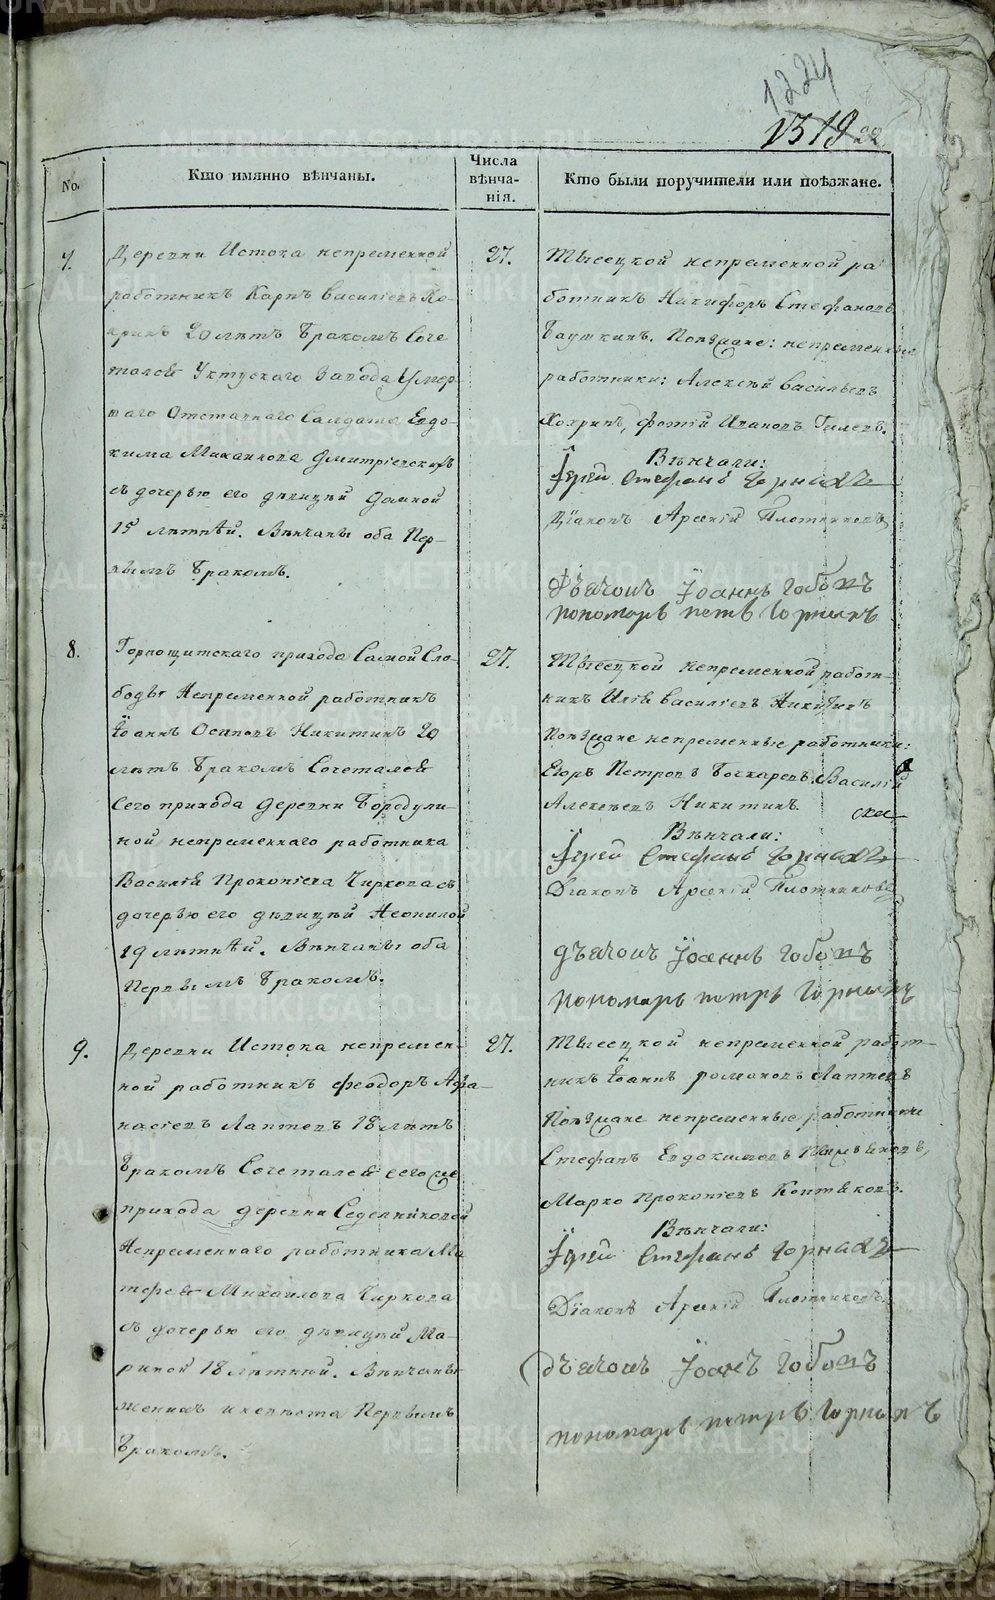 1224
1319 22
No.
Кто имянно вѣнчаны.
Числа
вѣнча-
нія.
Кто были поручители или поѣзжане.
7.
Деревни Истока непременной
работникъ Карпъ Василіевъ Хо-
хринъ 20 лѣтъ бракомъ соче
тался Уктускаго Завода умер-
шаго Отставнаго Салдата Евдо-
кима Михаилова Дмитріевскихъ
съ дочерью его дѣвицей Домной
15 лѣтнѣй. Вѣнчаны оба Пер-
вымъ бракомъ.
27.
непременной ра
ботникъ Никифоръ Стефановъ
Баушкинъ. Поѣзжане: непременные
работники: Алексѣй Васильевъ
Хохринъ, Фотій Ивановъ Гилевъ.
Вѣнчали:
Іерей Стефанъ Горныхъ
Діаконъ Арсеній Плотниковъ
Дьячокъ Іоаннъ
пономарь Петръ Горныхъ
8.
Горнощитскаго прихода Самой Сло-
боды Непременной работникъ
Іоаннъ Осиповъ Никитинъ 20
лѣтъ бракомъ Сочетался
Сего прихода деревни Бородули-
ной непременнаго работника
Василія Прокопіева Чиркова съ
дочерью его дѣвицей Неонилой
19 лѣтнѣй. Вѣнчаны оба
Первымъ бракомъ.
27.
непременной работ-
никъ Илія Василіевъ Никитинъ
Поѣзжане непременные работники:
Егоръ Петровъ Бочкаревъ, Василій
Алексѣевъ Никитинъ.
Вѣнчали:
Іерей Стефанъ Горныхъ
Діаконъ Арсеній Плотниковъ
дьячокъ Іоаннъ
пономарь Петръ Горныхъ
9.
Деревни Истока непремен-
ной работникъ Феодоръ Афа-
насіевъ Лаптевъ 18 лѣтъ
бракомъ Сочетался сего же
прихода деревни Седелниковой
Непременнаго работника Ма
тфея Михаилова Чиркова
съ дочерью его дѣвицей Ма-
риной 18 лѣтней. Вѣнчаны
женихъ и невѣста Первымъ
бракомъ.
27.
непременной работ-
никъ Іоаннъ Романовъ Лаптевъ
Поѣзжане непременные работники
Стефанъ Евдокимовъ
Марко Прокопіевъ
Вѣнчали:
Іерей Стефанъ Горныхъ
Діаконъ Арсеній Плотниковъ
дьячокъ Іоанъ
пономарь Петръ Горныхъ
METRIKI.GASO-URAL.RU